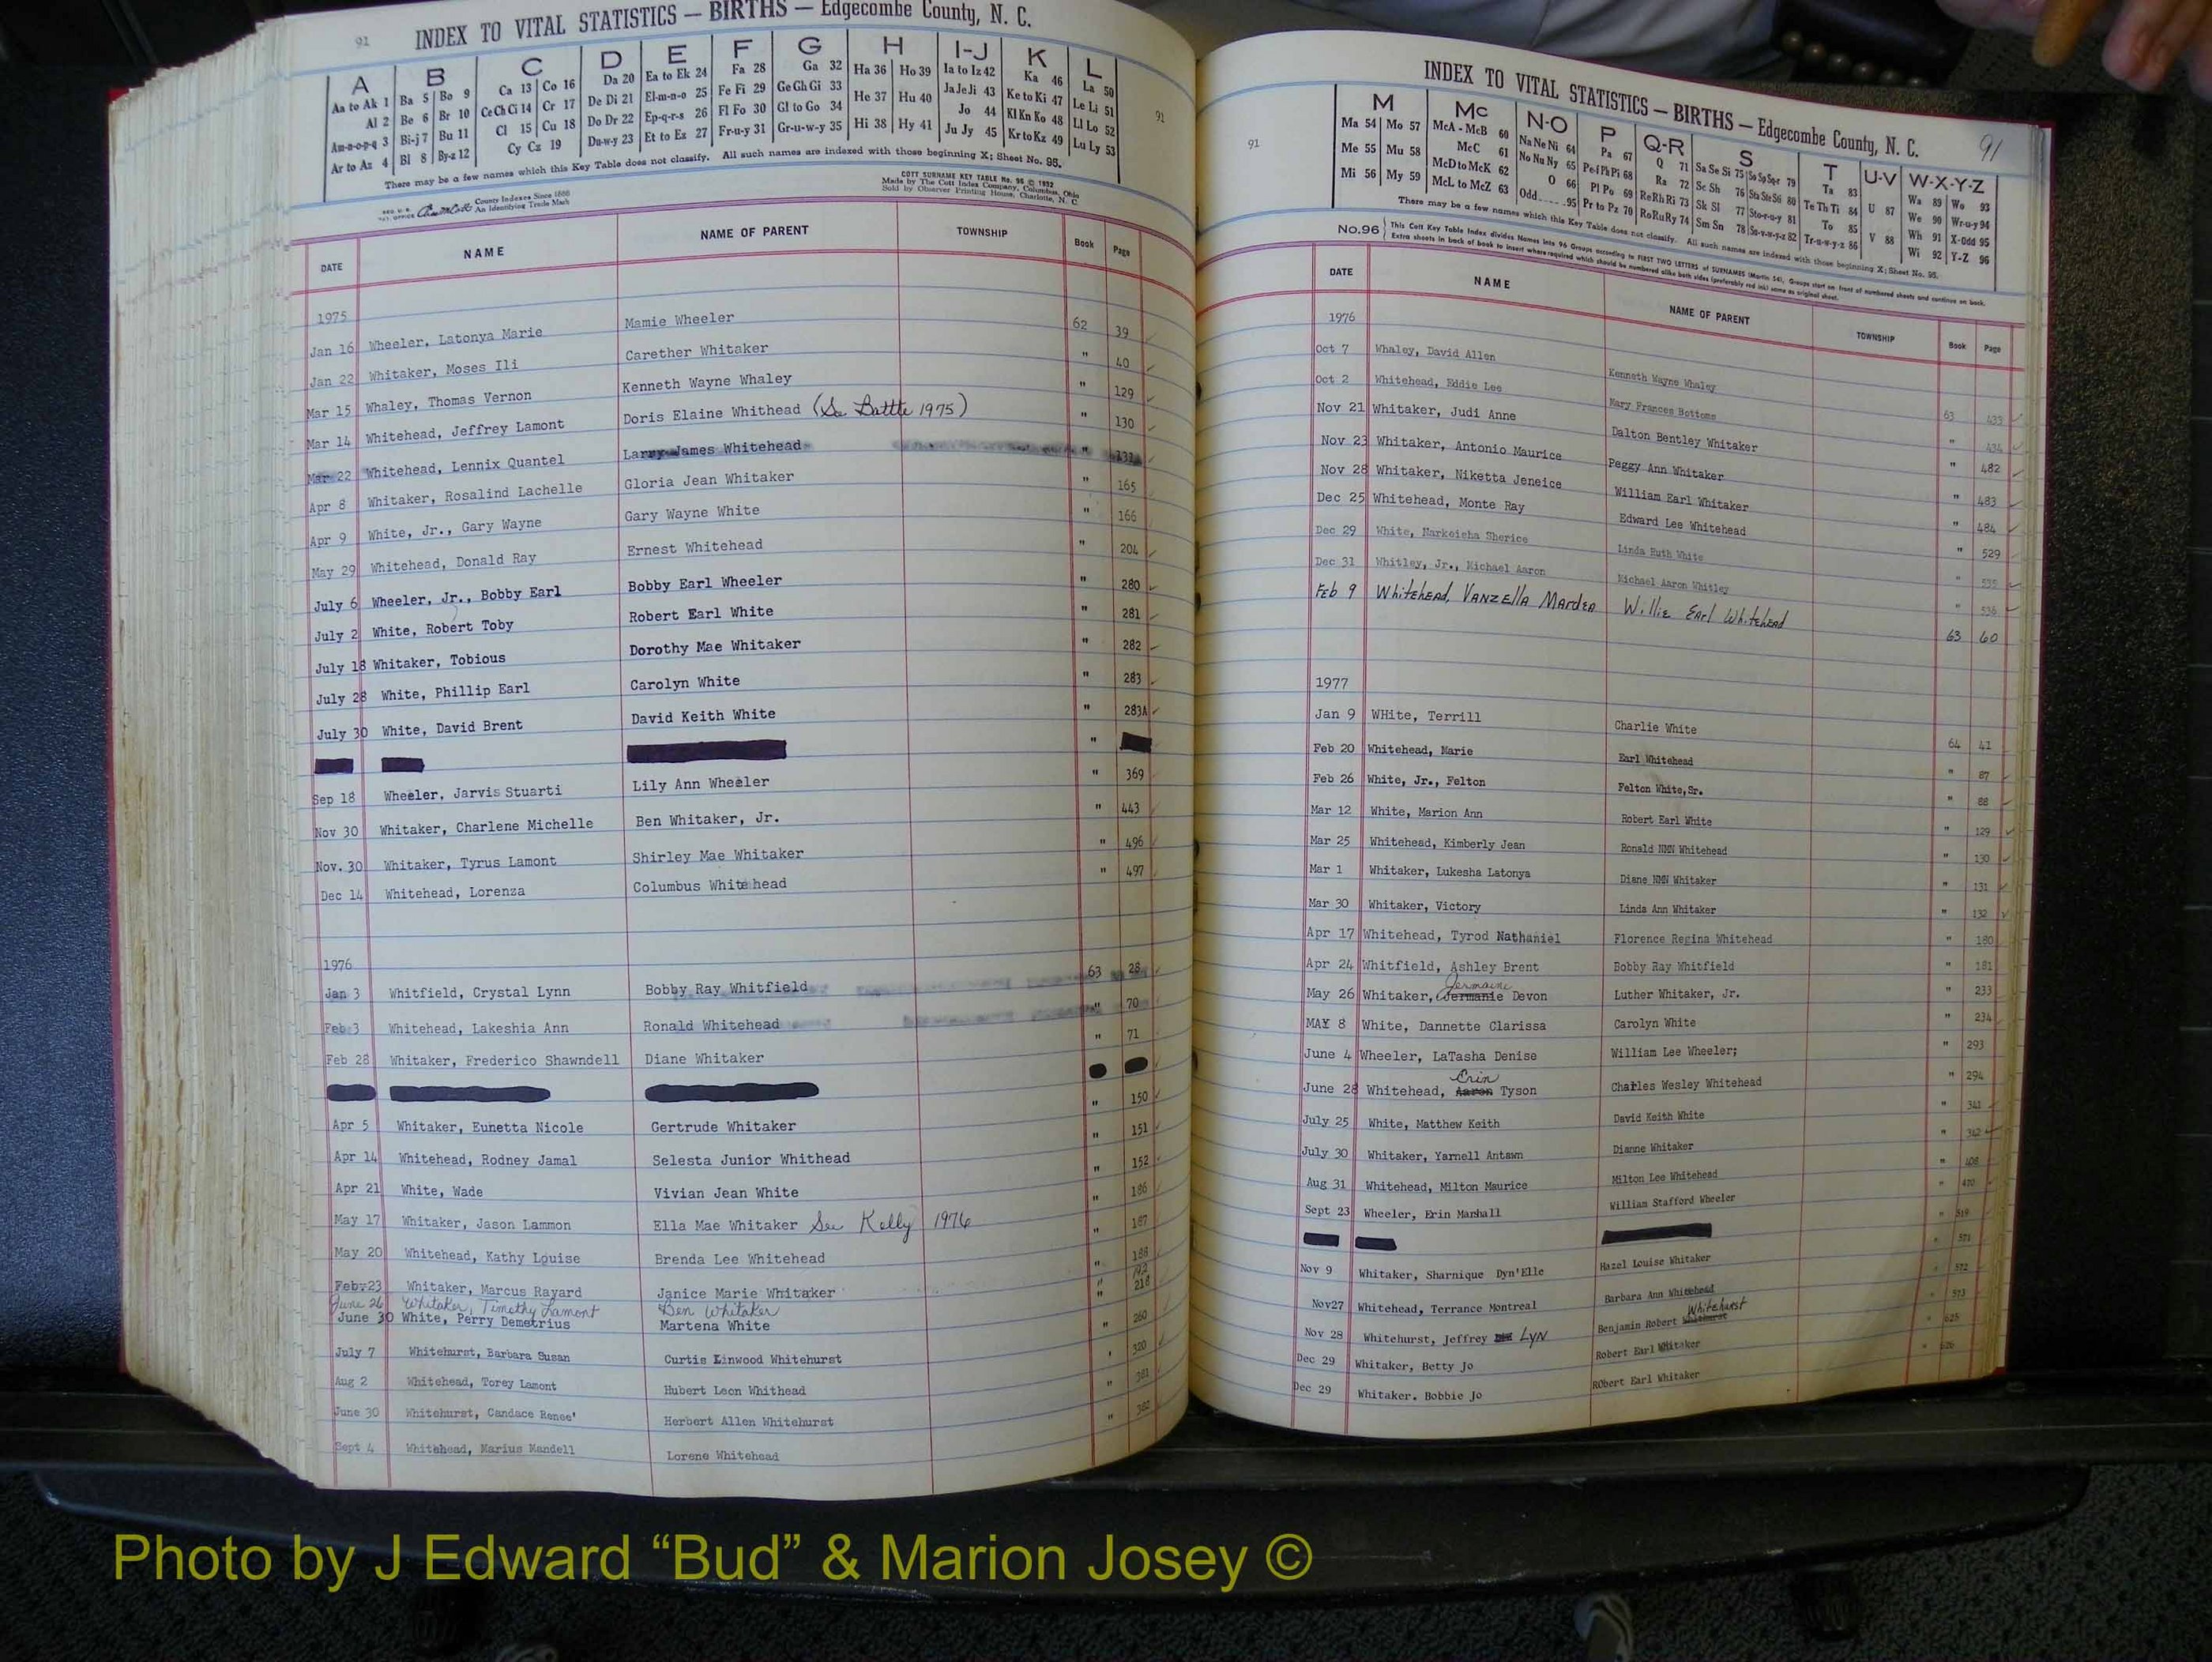 91 INDEX TO VITAL STATISTICS — BIRTHS — Edgecombe County, N. C.
A B C D E F G H I-J K L
Aa to Ak 1 Ba 5 Bo 9 Ca 13 Co 16 Da 20 Ea to Ek 24 Fa 28 Ga 32 Ha 36 Ho 39 Ia to Iz 42 Ka 46 La 50
Al 2 Be 6 Br 10 Ce Ch Ci 14 Cr 17 De Di 21 El-m-n-o 25 Fe Fi 29 Ge Gh Gi 33 He 37 Hu 40 Ja Je Ji 43 Ke to Ki 47 Le Li 51
Am-n-o-p-q 3 Bi-j 7 Bu 11 Cl 15 Cu 18 Do Dr 22 Ep-q-r-s 26 Fl Fo 30 Gl to Go 34 Hi 38 Hy 41 Jo 44 Kl Kn Ko 48 Ll Lo 52
Ar to Az 4 Bl 8 By-z 12 Cy Cz 19 Du-w-y 23 Et to Ez 27 Fr-u-y 31 Gr-u-w-y 35 Ju Jy 45 Kr to Kz 49 Lu Ly 53
91
There may be a few names which this Key Table does not classify. All such names are indexed with those beginning X; Sheet No. 95.
COTT SURNAME KEY TABLE No. 96 © 1952
Made by The Cott Index Company, Columbus, Ohio
Sold by Observer Printing House, Charlotte, N. C.
County Indexes Since 1888
An Identifying Trade Mark
DATE NAME NAME OF PARENT TOWNSHIP Book Page
1975
Jan 16 Wheeler, Latonya Marie Mamie Wheeler 62 39
Jan 22 Whitaker, Moses Ili Carether Whitaker " 40
Mar 15 Whaley, Thomas Vernon Kenneth Wayne Whaley " 129
Mar 14 Whitehead, Jeffrey Lamont Doris Elaine Whithead (See Battle 1975) " 130
Mar 22 Whitehead, Lennix Quantel Larry James Whitehead " 131
Apr 8 Whitaker, Rosalind Lachelle Gloria Jean Whitaker " 165
Apr 9 White, Jr., Gary Wayne Gary Wayne White " 166
May 29 Whitehead, Donald Ray Ernest Whitehead " 204
July 6 Wheeler, Jr., Bobby Earl Bobby Earl Wheeler " 280
July 2 White, Robert Toby Robert Earl White " 281
July 18 Whitaker, Tobious Dorothy Mae Whitaker " 282
July 28 White, Phillip Earl Carolyn White " 283
July 30 White, David Brent David Keith White " 283A
"
Sep 18 Wheeler, Jarvis Stuarti Lily Ann Wheeler " 369
Nov 30 Whitaker, Charlene Michelle Ben Whitaker, Jr. " 443
Nov. 30 Whitaker, Tyrus Lamont Shirley Mae Whitaker " 496
Dec 14 Whitehead, Lorenza Columbus Whitehead " 497
1976
Jan 3 Whitfield, Crystal Lynn Bobby Ray Whitfield 63 28
Feb 3 Whitehead, Lakeshia Ann Ronald Whitehead " 70
Feb 28 Whitaker, Frederico Shawndell Diane Whitaker " 71
Apr 5 Whitaker, Eunetta Nicole Gertrude Whitaker " 150
Apr 14 Whitehead, Rodney Jamal Selesta Junior Whithead " 151
Apr 21 White, Wade Vivian Jean White " 152
May 17 Whitaker, Jason Lammon Ella Mae Whitaker See Kelly 1976 " 186
May 20 Whitehead, Kathy Louise Brenda Lee Whitehead " 187
Feb 23 Whitaker, Marcus Rayard Janice Marie Whitaker " 188
June 26 Whitaker, Timothy Lamont Ben Whitaker " 192
June 30 White, Perry Demetrius Martena White " 218
July 7 Whitehurst, Barbara Susan Curtis Linwood Whitehurst " 260
Aug 2 Whitehead, Torey Lamont Hubert Leon Whithead " 320
June 30 Whitehurst, Candace Renee' Herbert Allen Whitehurst " 381
Sept 4 Whitehead, Marius Mandell Lorene Whitehead " 382
INDEX TO VITAL STATISTICS — BIRTHS — Edgecombe County, N. C. 91
M Mc N-O P Q-R S T U-V W-X-Y-Z
Ma 54 Mo 57 McA - McB 60 Na Ne Ni 64 Pa 67 Q 71 Sa Se Si 75 So Sp Sq-r 79 Ta 83 U 87 Wa 89 Wo 93
Me 55 Mu 58 McC 61 No Nu Ny 65 Pe-f Ph Pi 68 Ra 72 Sc Sh 76 Sta Ste Sti 80 Te Th Ti 84 V 88 We 90 Wr-u-y 94
Mi 56 My 59 McD to McK 62 O 66 Pl Po 69 Re Rh Ri 73 Sk Sl 77 Sto-r-u-y 81 To 85 Wh 91 X-Odd 95
McL to McZ 63 Odd 95 Pr to Pz 70 Ro Ru Ry 74 Sm Sn 78 Su-v-w-y-z 82 Tr-u-w-y-z 86 Wi 92 Y-Z 96
91
There may be a few names which this Key Table does not classify. All such names are indexed with those beginning X; Sheet No. 95.
No.96 This Cott Key Table Index divides Names into 96 Groups according to FIRST TWO LETTERS of SURNAMES (Martin 54). Groups start on front of numbered sheets and continue on back.
Extra sheets in back of book to insert where required which should be numbered alike both sides (preferably red ink) same as original sheet.
DATE NAME NAME OF PARENT TOWNSHIP Book Page
1976
Oct 7 Whaley, David Allen Kenneth Wayne Whaley 63 433
Oct 2 Whitehead, Eddie Lee Mary Frances Bottoms " 434
Nov 21 Whitaker, Judi Anne Dalton Bentley Whitaker " 482
Nov 23 Whitaker, Antonio Maurice Peggy Ann Whitaker " 483
Nov 28 Whitaker, Niketta Jeneice William Earl Whitaker " 484
Dec 25 Whitehead, Monte Ray Edward Lee Whitehead " 529
Dec 29 White, Narkeisha Sherice Linda Ruth White " 535
Dec 31 Whitley, Jr., Michael Aaron Michael Aaron Whitley " 536
Feb 9 Whitehead, Vanzella Mardea Willie Earl Whitehead 63 60
1977
Jan 9 WHite, Terrill Charlie White 64 41
Feb 20 Whitehead, Marie Earl Whitehead " 87
Feb 26 White, Jr., Felton Felton White, Sr. " 88
Mar 12 White, Marion Ann Robert Earl White " 129
Mar 25 Whitehead, Kimberly Jean Ronald NMN Whitehead " 130
Mar 1 Whitaker, Lukesha Latonya Diane NMN Whitaker " 131
Mar 30 Whitaker, Victory Linda Ann Whitaker " 132
Apr 17 Whitehead, Tyrod Nathaniel Florence Regina Whitehead " 180
Apr 24 Whitfield, Ashley Brent Bobby Ray Whitfield " 181
Jermaine
May 26 Whitaker, Jermanie Devon Luther Whitaker, Jr. " 233
MAY 8 White, Dannette Clarissa Carolyn White " 234
June 4 Wheeler, LaTasha Denise William Lee Wheeler; " 293
Erin
June 28 Whitehead, Aaron Tyson Charles Wesley Whitehead " 294
July 25 White, Matthew Keith David Keith White " 341
July 30 Whitaker, Yarnell Antawn Dianne Whitaker " 342
Aug 31 Whitehead, Milton Maurice Milton Lee Whitehead " 408
Sept 23 Wheeler, Erin Marshall William Stafford Wheeler " 470
" 519
Nov 9 Whitaker, Sharnique Dyn'Elle Hazel Louise Whitaker " 571
Nov27 Whitehead, Terrance Montreal Barbara Ann Whitehead " 572
Whitehurst
Nov 28 Whitehurst, Jeffrey Lyn Benjamin Robert " 573
Dec 29 Whitaker, Betty Jo Robert Earl Whitaker " 625
Dec 29 Whitaker. Bobbie Jo RObert Earl Whitaker " 626
Photo by J Edward “Bud” & Marion Josey ©